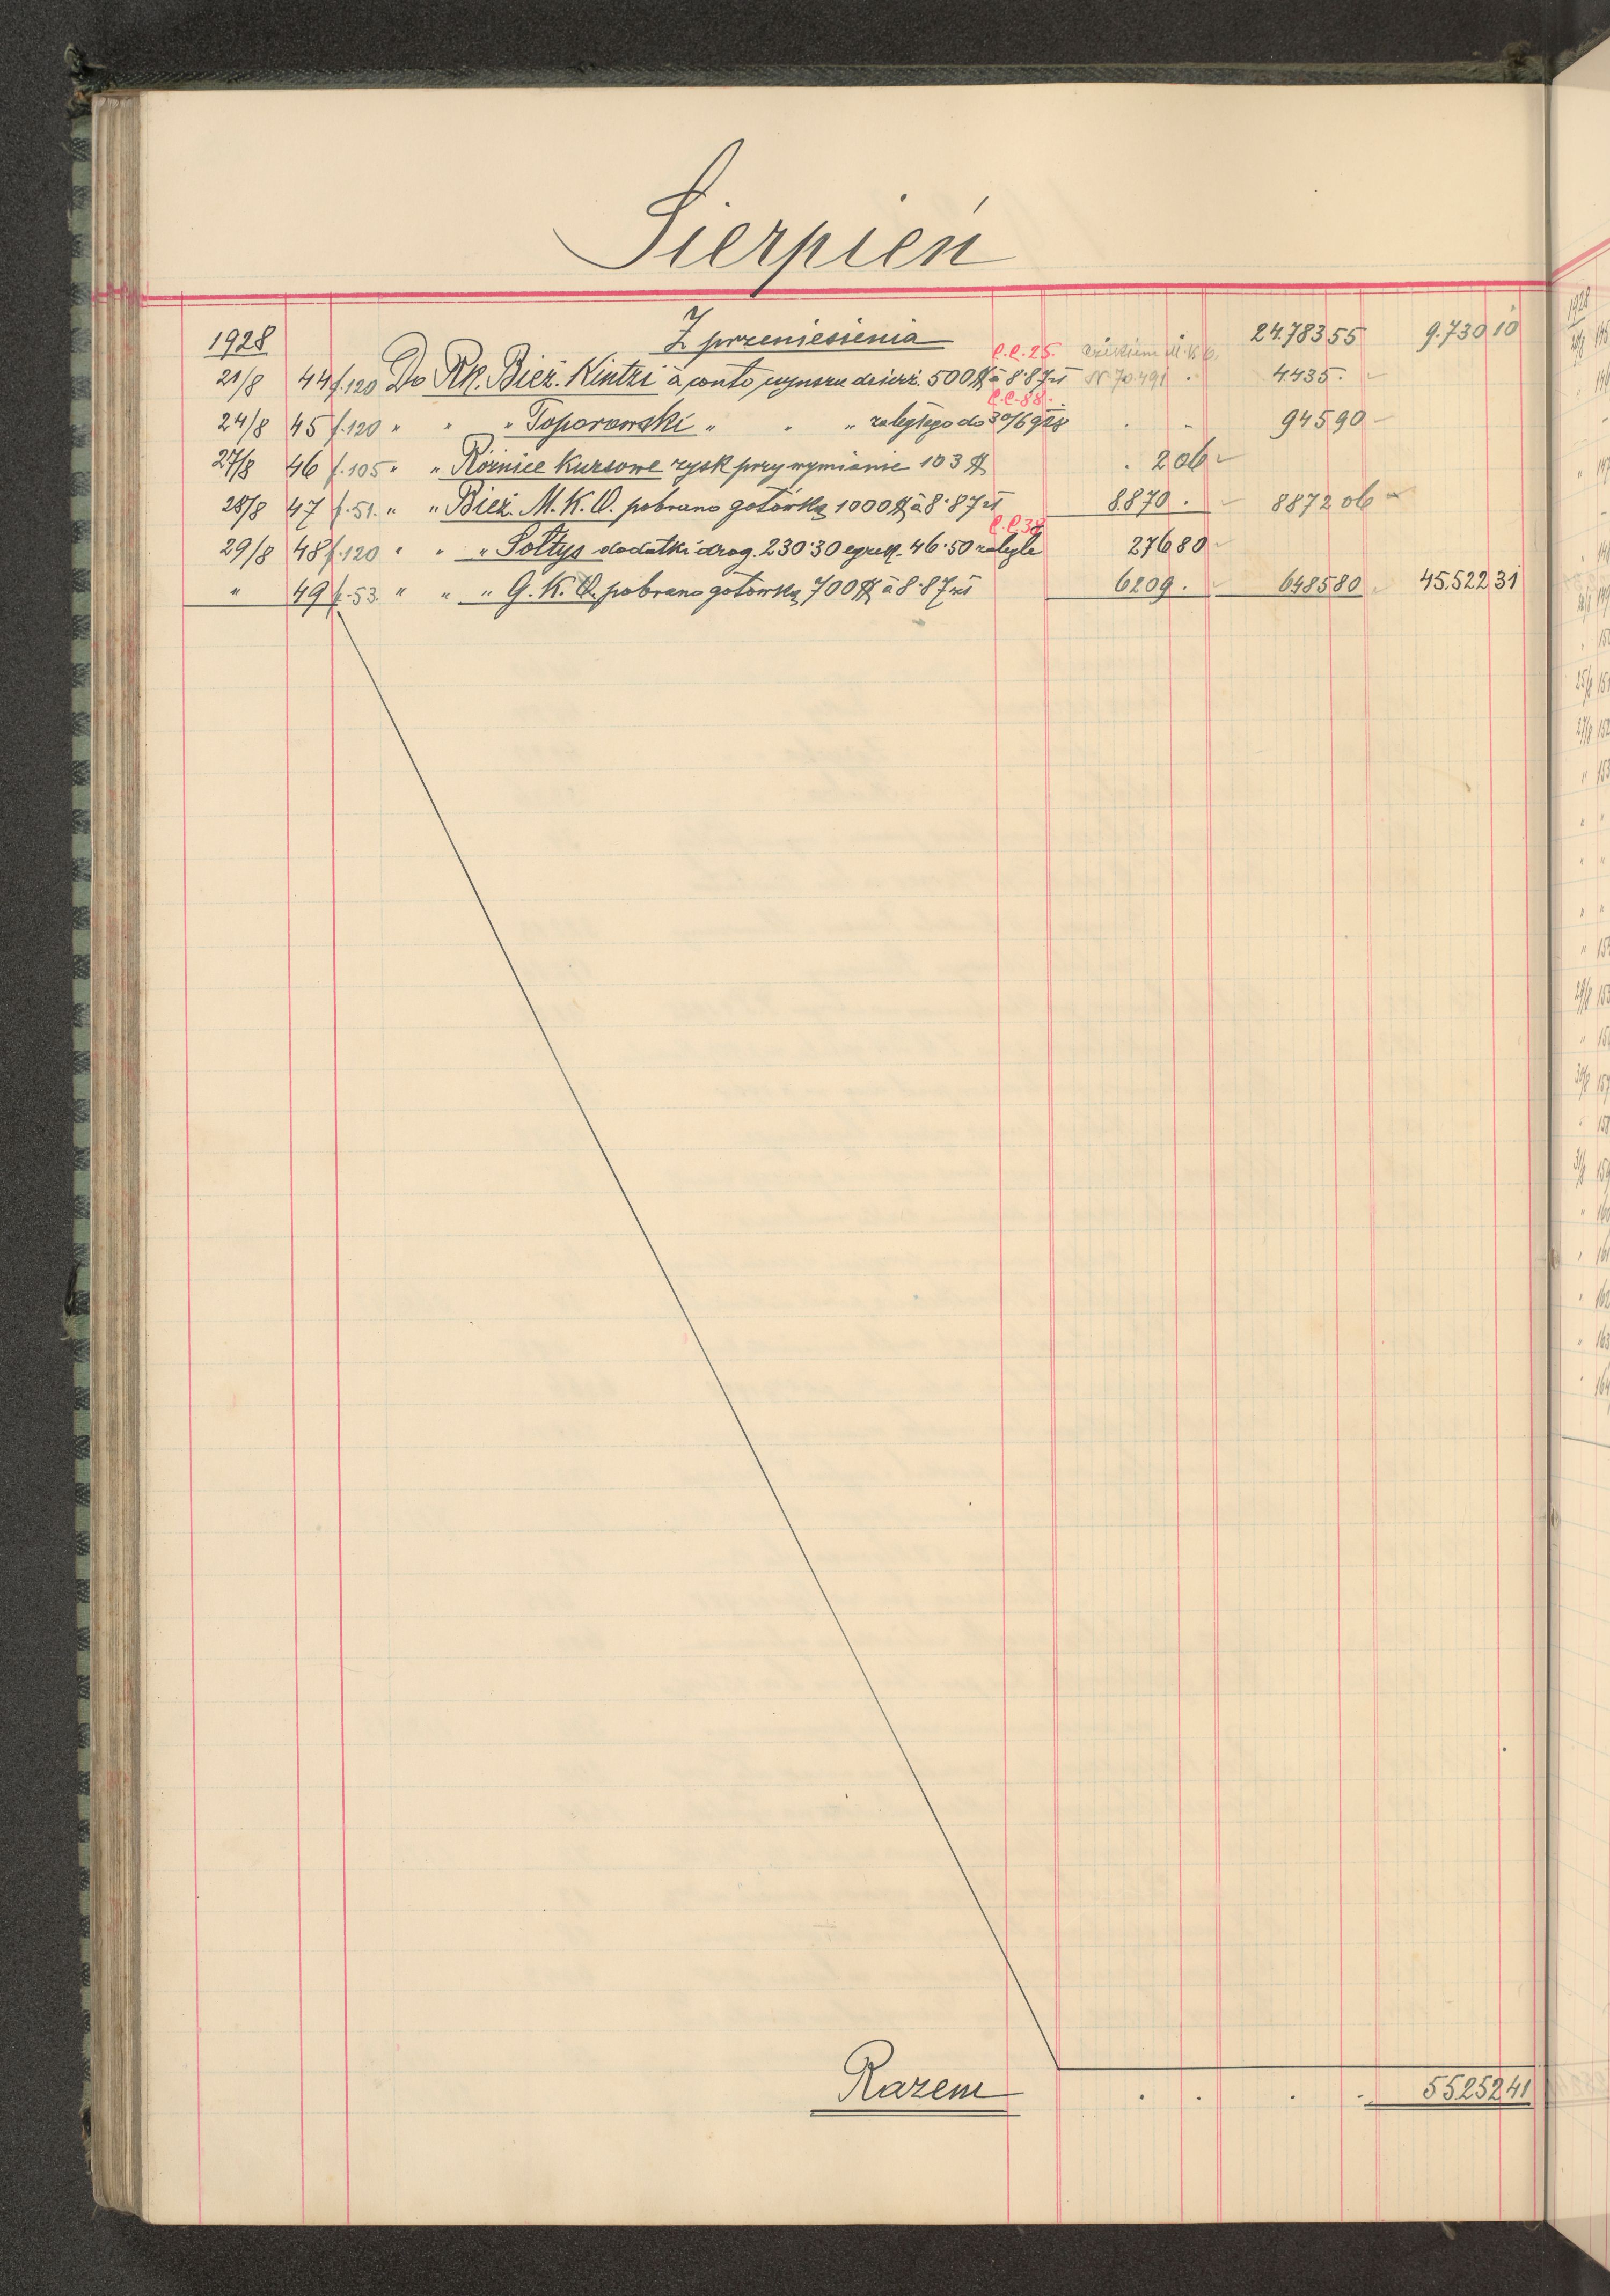 Sierpień
1928 Z przeniesienia 24.783 55 9.730 10
C.C. 25.
21/8 44 f.120 Do Rk. Bież. Kintzi à conto czynszu dzierż. 500 $ à 8·87 zł Nr 70491 4.435.
C.C. 88.
24/8 45 f.120 " " " Toporowski " " " zaległego do 30/6 928 945 90
27/8 46 f.105 " " Różnice Kursowe zysk przy wymianie 103 $ 2 06
28/8 47 f.51. " " Bież. M. K. O. pobrano gotówką 1000 $ à 8·87 zł 8.870. 8872 06
C.C. 38
29/8 48 f.120 " " " Sołtys dodatki drog. 230·30 egzek. 46·50 zaległe 276 80
" 49 f.53. " " " G. K. O. pobrano gotówką 700 $ à 8·87 zł 6209. 6485 80 45.522 31
Razem 55252 41